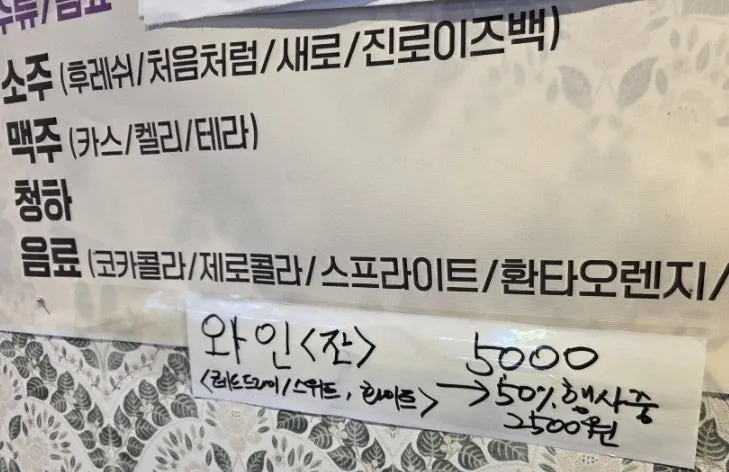 주류/음료
소주 (후레쉬/처음처럼/새로/진로이즈백)
맥주 (카스/켈리/테라)
청하
음료 (코카콜라/제로콜라/스프라이트/환타오렌지/
와인<잔> 5000
<레드드라이/스위트, 화이트> → 50% 행사중
2500원